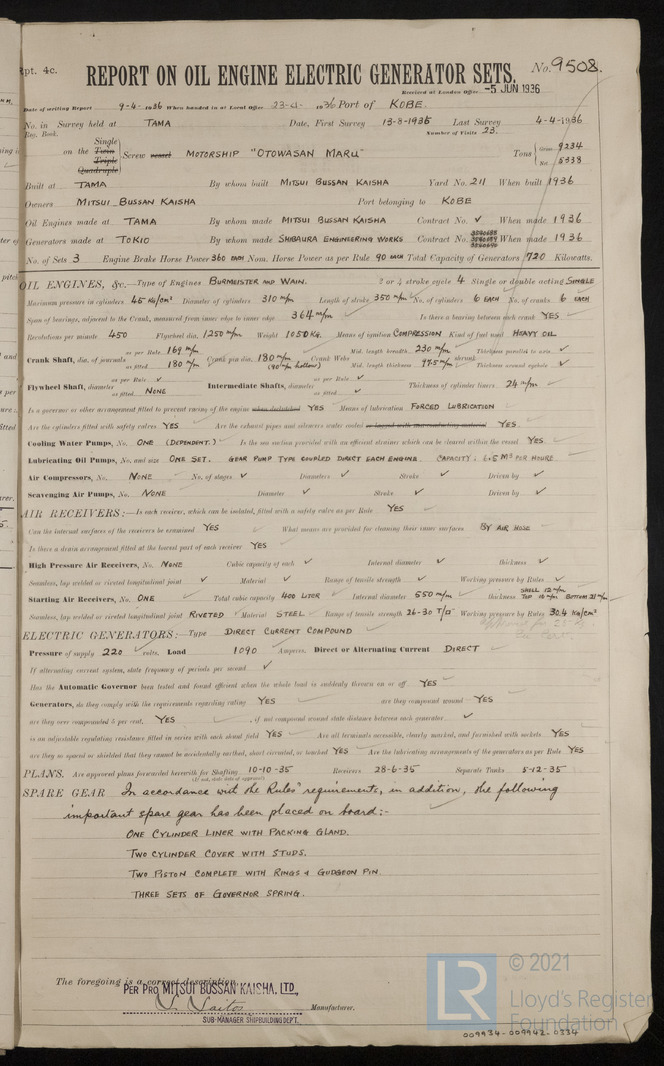 Rpt. 4c.
REPORT ON OIL ENGINE ELECTRIC GENERATOR SETS.
No. 9508.
Received at London Office -5 JUN 1936
Date of writing Report 9-4-1936 When handed in at Local Office 23-4-1936 Port of KOBE.
No. in Survey held at TAMA Date, First Survey 13-8-1935 Last Survey 4-4-1936
Reg. Book. Number of Visits 23.
on the Single Twin Triple Quadruple Screw vessel MOTORSHIP "OTOWASAN MARU" Tons Gross 9234 Net 5338
Built at TAMA By whom built MITSUI BUSSAN KAISHA Yard No. 211 When built 1936
Owners MITSUI BUSSAN KAISHA Port belonging to KOBE
Oil Engines made at TAMA By whom made MITSUI BUSSAN KAISHA Contract No. ✓ When made 1936
Generators made at TOKIO By whom made SHIBAURA ENGINEERING WORKS Contract No. When made 1936
No. of Sets 3 Engine Brake Horse Power 360 EACH Nom. Horse Power as per Rule 90 EACH Total Capacity of Generators 720 Kilowatts.
OIL ENGINES, &c.—Type of Engines BURMEISTER AND WAIN. 2 or 4 stroke cycle 4 Single or double acting SINGLE
Maximum pressure in cylinders 45 KG/CM² Diameter of cylinders 310 m/m Length of stroke 350 m/m No. of cylinders 6 EACH No. of cranks 6 EACH
Span of bearings, adjacent to the Crank, measured from inner edge to inner edge 364 m/m Is there a bearing between each crank YES
Revolutions per minute 450 Flywheel dia. 1250 m/m Weight 1050 KG. Means of ignition COMPRESSION Kind of fuel used HEAVY OIL
Crank Shaft, dia. of journals as per Rule 169 m/m as fitted 180 m/m Crank pin dia. 180 m/m (90 m/m hollow) Crank Webs Mid. length breadth 230 m/m Mid. length thickness 97.5 m/m shrunk Thickness parallel to axis ✓ Thickness around eyehole ✓
Flywheel Shaft, diameter as per Rule ✓ as fitted NONE Intermediate Shafts, diameter as per Rule ✓ as fitted ✓ Thickness of cylinder liners 24 m/m
Is a governor or other arrangement fitted to prevent racing of the engine when declutched YES Means of lubrication FORCED LUBRICATION
Are the cylinders fitted with safety valves YES Are the exhaust pipes and silencers water cooled or lagged with non-conducting material YES
Cooling Water Pumps, No. ONE (DEPENDENT.) Is the sea suction provided with an efficient strainer which can be cleared within the vessel YES
Lubricating Oil Pumps, No. and size ONE SET. GEAR PUMP TYPE COUPLED DIRECT EACH ENGINE. CAPACITY: 4.5 M³ PER HOURE
Air Compressors, No. NONE No. of stages ✓ Diameters ✓ Stroke ✓ Driven by ✓
Scavenging Air Pumps, No. NONE Diameter ✓ Stroke ✓ Driven by ✓
AIR RECEIVERS:—Is each receiver, which can be isolated, fitted with a safety valve as per Rule YES
Can the internal surfaces of the receivers be examined YES What means are provided for cleaning their inner surfaces BY AIR HOSE
Is there a drain arrangement fitted at the lowest part of each receiver YES
High Pressure Air Receivers, No. NONE Cubic capacity of each ✓ Internal diameter ✓ thickness ✓
Seamless, lap welded or riveted longitudinal joint ✓ Material ✓ Range of tensile strength ✓ Working pressure by Rules ✓
Starting Air Receivers, No. ONE Total cubic capacity 400 LITOR Internal diameter 550 m/m thickness SHELL 12 m/m TOP 16 m/m BOTTOM 21 m/m
Seamless, lap welded or riveted longitudinal joint RIVETED Material STEEL Range of tensile strength 26-30 T/□" Working pressure by Rules 30.4 KG/CM²
ELECTRIC GENERATORS:—Type DIRECT CURRENT COMPOUND
Pressure of supply 220 volts. Load 1090 Amperes. Direct or Alternating Current DIRECT
If alternating current system, state frequency of periods per second ✓
Has the Automatic Governor been tested and found efficient when the whole load is suddenly thrown on or off YES
Generators, do they comply with the requirements regarding rating YES are they compound wound YES
are they over compounded 5 per cent. YES , if not compound wound state distance between each generator ✓
is an adjustable regulating resistance fitted in series with each shunt field YES Are all terminals accessible, clearly marked, and furnished with sockets YES
are they so spaced or shielded that they cannot be accidentally earthed, short circuited, or touched YES Are the lubricating arrangements of the generators as per Rule YES
PLANS. Are approved plans forwarded herewith for Shafting 10-10-35 Receivers 28-6-35 Separate Tanks 5-12-35
(If not, state date of approval)
SPARE GEAR In accordance with the Rules' requirements, in addition, the following
important spare gear has been placed on board:-
ONE CYLINDER LINER WITH PACKING GLAND.
TWO CYLINDER COVER WITH STUDS.
TWO PISTON COMPLETE WITH RINGS & GUDGEON PIN.
THREE SETS OF GOVERNOR SPRING.
The foregoing is a correct description,
PER PRO MITSUI BUSSAN KAISHA, LTD.,
S. Saito Manufacturer.
SUB-MANAGER SHIPBUILDING DEPT.
LR © 2021
Lloyd's Register
Foundation
009934-009942-0334